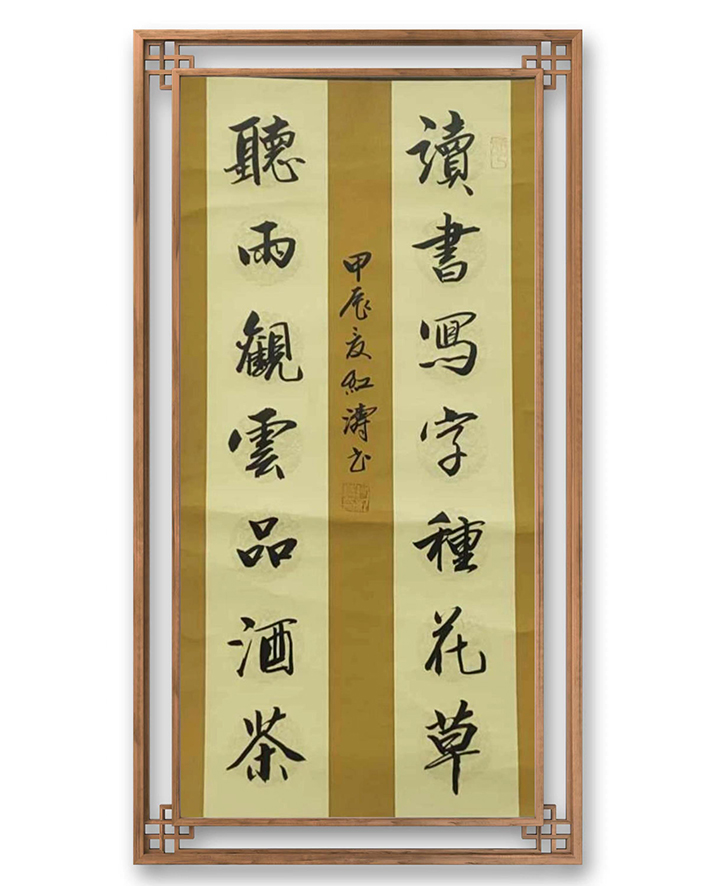 讀書寫字種花草
聽雨觀雲品酒茶
甲辰夏紅濤书